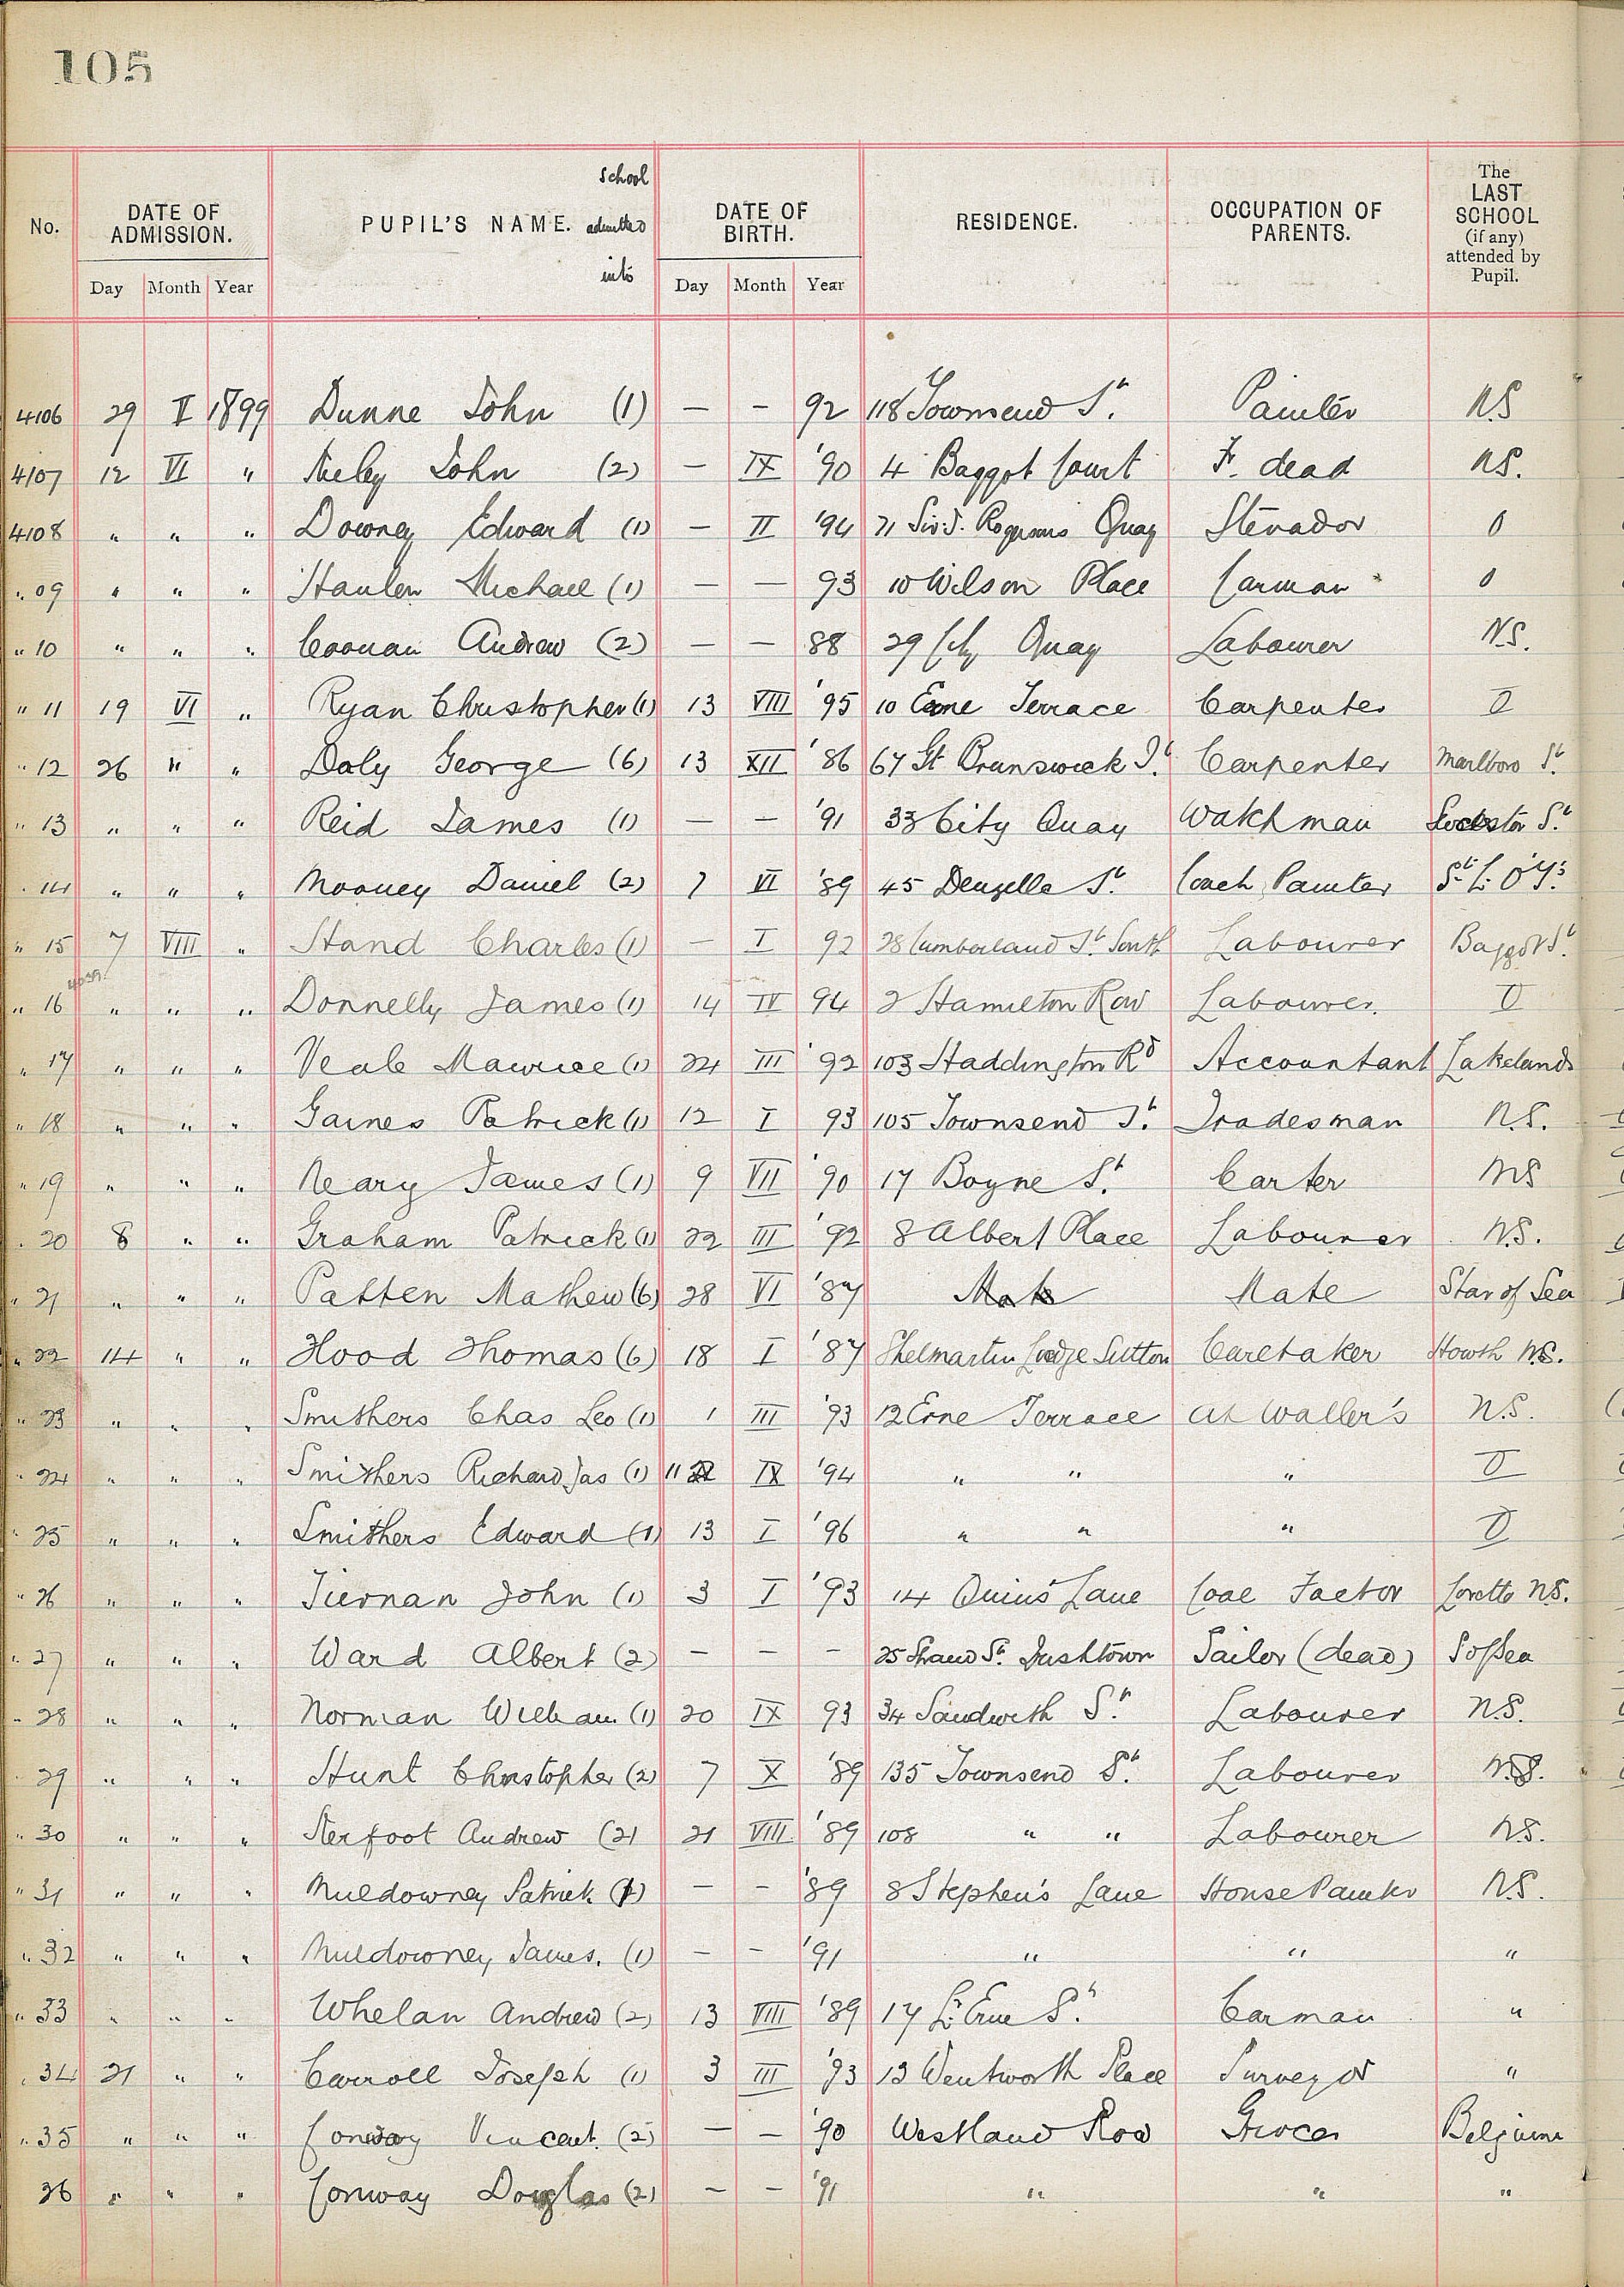 105
No. DATE OF ADMISSION. PUPIL'S NAME. school admitted into DATE OF BIRTH. RESIDENCE. OCCUPATION OF PARENTS. The LAST SCHOOL (if any) attended by Pupil.
Day Month Year Day Month Year
4106 29 V 1899 Dunne John (1) — - 92 118 Townsend St. Painter N.S
4107 12 VI " Neley John (2) — IX '90 4 Baggot Court F. dead N.S.
4108 " " " Downey Edward (1) — II '94 71 Sir J. Rogersons Quay Stevador 0
" 09 " " " Hanlon Michael (1) — — 93 10 Wilson Place Carman 0
" 10 " " " Coonan Andrew (2) — — 88 29 City Quay Labourer N.S.
" 11 19 VI " Ryan Christopher (1) 13 VIII '95 10 Erne Terrace Carpenter 0
" 12 26 " " Daly George (6) 13 XII '86 67 Gt Brunswick St. Carpenter Marlboro St.
" 13 " " " Reid James (1) — — '91 33 City Quay Watchman St.
" 14 " " " Mooney Daniel (2) 7 VI '89 45 Denzelle St. Coach Painter St. L. O'T's.
" 15 7 VIII " Hand Charles (1) — I 92 28 Cumberland St. South Labourer Baggot St.
" 16 " " " Donnelly James (1) 14 IV 94 2 Hamilton Row Labourer. 0
" 17 " " " Veale Maurice (1) 24 III '92 103 Haddington Rd Accountant Lakelands
" 18 " " " Gaines Patrick (1) 12 I 93 105 Townsend St. Tradesman N.S.
" 19 " " " Neary James (1) 9 VII '90 17 Boyne St. Carter NS
" 20 8 " " Graham Patrick (1) 22 III '92 8 Albert Place Labourer N.S.
" 21 " " " Patten Mathew (6) 28 VI '87 Mate Mate Star of Sea
" 22 14 " " Hood Thomas (6) 18 I '87 Shelmartin Lodge Sutton Caretaker Howth N.S.
" 23 " " " Smithers Chas Leo (1) 1 III '93 12 Erne Terrace at Waller's N.S.
" 24 " " " Smithers Richard Jas (1) 11 IX '94 " " " 0
" 25 " " " Smithers Edward (1) 13 I '96 " " " 0
" 26 " " " Tiernan John (1) 3 I '93 14 Quins Lane Coal Factor Loretto N.S.
" 27 " " " Ward Albert (2) — — — 25 Shaw St. Irishtown Sailor (dead) S of Sea
" 28 " " " Norman William (1) 20 IX 93 34 Sandwith St. Labourer N.S.
" 29 " " " Hunt Christopher (2) 7 X '89 135 Townsend St. Labourer N.S.
" 30 " " " Kerfoot Andrew (2) 21 VIII '89 108 " " Labourer N.S.
" 31 " " " Muldowney Patrick (1) — — '89 8 Stephen's Lane House Painter N.S.
" 32 " " " Muldowney James. (1) — — '91 " " "
" 33 " " " Whelan Andrew (2) 13 VIII '89 17 Lr. Erne St. Carman "
" 34 21 " " Carroll Joseph (1) 3 III '93 13 Wentworth Place Surveyor "
" 35 " " " Conway Vincent. (2) — — '90 Westland Row Grocer Belgium
36 " " " Conway Douglas (2) — — '91 " " "